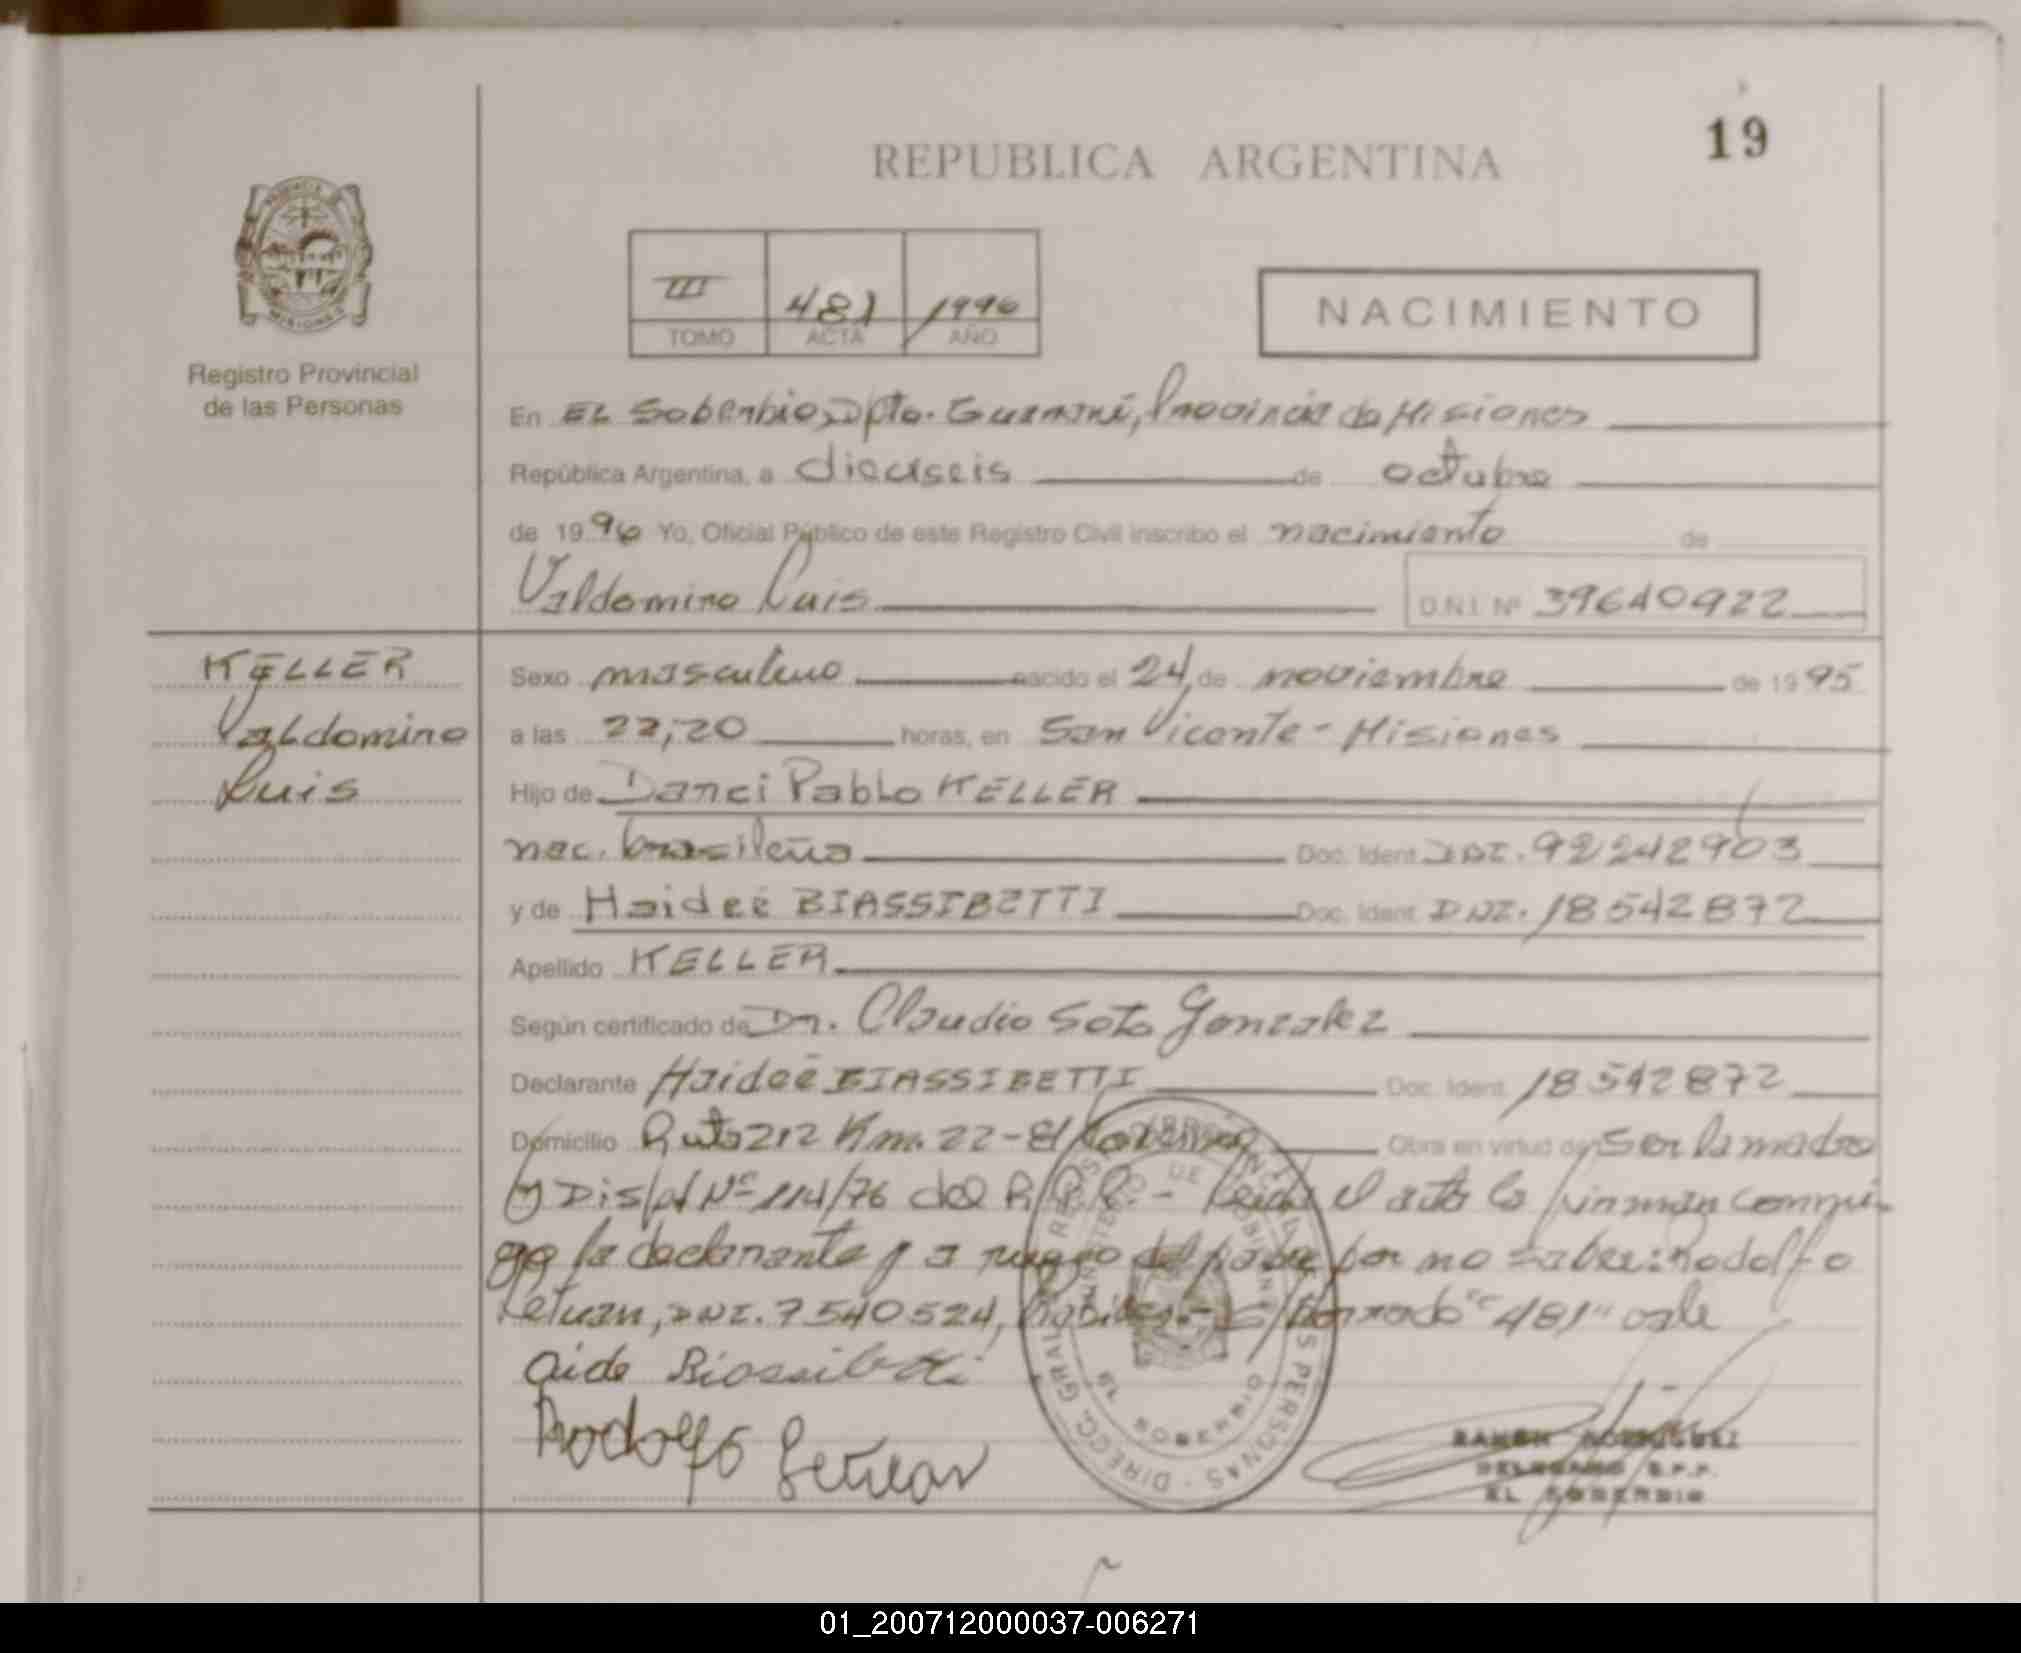 19
REPUBLICA ARGENTINA
PROVINCIA DE
MISIONES
Registro Provincial
de las Personas
III 481 1996
TOMO ACTA AÑO
NACIMIENTO
En EL Soberbio, Dpto. Guaraní, Provincia de Misiones
República Argentina, a dieciseis de octubre
de 1996 Yo, Oficial Público de este Registro Civil inscribo el nacimiento de
Valdomiro Luis D.N.I. Nº 39640922
KELLER
Valdomiro
Luis
Sexo masculino nacido el 24 de noviembre de 1995
a las 22,20 horas, en San Vicente - Misiones
Hijo de Danci Pablo KELLER
nac. brasileña Doc. Ident. DNI. 92242903
y de Haideé BIASSIBETTI Doc. Ident. DNI. 18542872
Apellido KELLER
Según certificado de Dr. Claudio Soto Gonzalez
Declarante Haideé BIASSIBETTI Doc. Ident. 18542872
Domicilio Ruta 212 Km. 22 - El Soberbio Obra en virtud de ser la madre
y Disp. Nº 114/76 del R.P.P. - Leída el acta la firman conmi
go la declarante y a ruego del padre por no saber: Rodolfo
DNI. 7540524, "481" vale
Aide Biassibetti
Rodolfo
RAMON RODRIGUEZ
DELEGADO R.P.P.
EL SOBERBIO
01_200712000037-006271